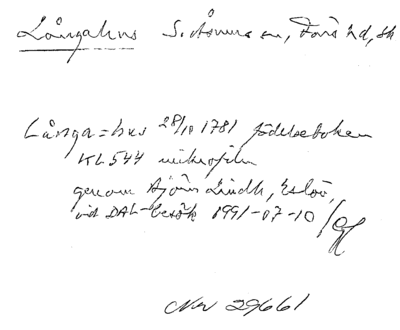 Långahus S. Åsums sn, Färs hd, sk
Långa=hus 28/10 1781 födelseboken
KL544 mikrofilm
genom Björn Lindh, Eslöv,
vid DAL-besök 1991-07-10/
Nov 29661